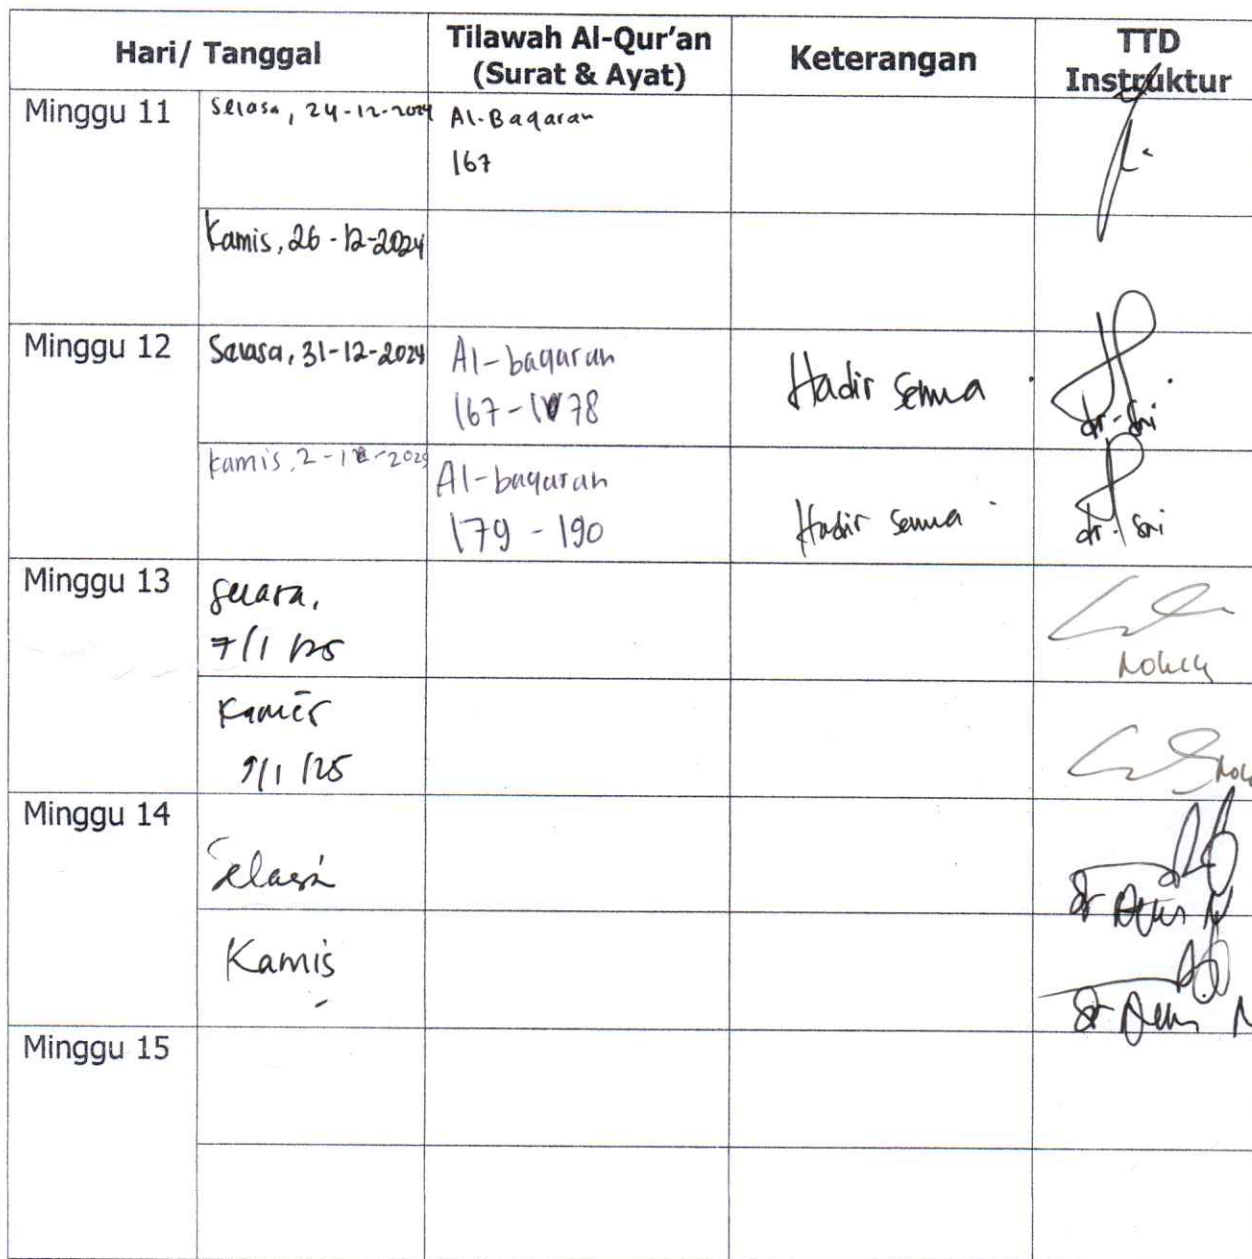 Hari/ Tanggal
Tilawah Al-Qur'an
(Surat & Ayat)
Keterangan
TTD
Instruktur
Minggu 11
Selasa, 24-12-2024
Al-Baqarah
167
Kamis, 26-12-2024
Minggu 12
Selasa, 31-12-2024
Al-baqarah
167-178
Hadir semua
dr. Sri
Kamis, 2-1-2025
Al-baqarah
179 - 190
Hadir semua
dr. Sri
Minggu 13
Selasa,
7/1/25
Kamis
9/1/25
Minggu 14
Selasa
Kamis
Minggu 15